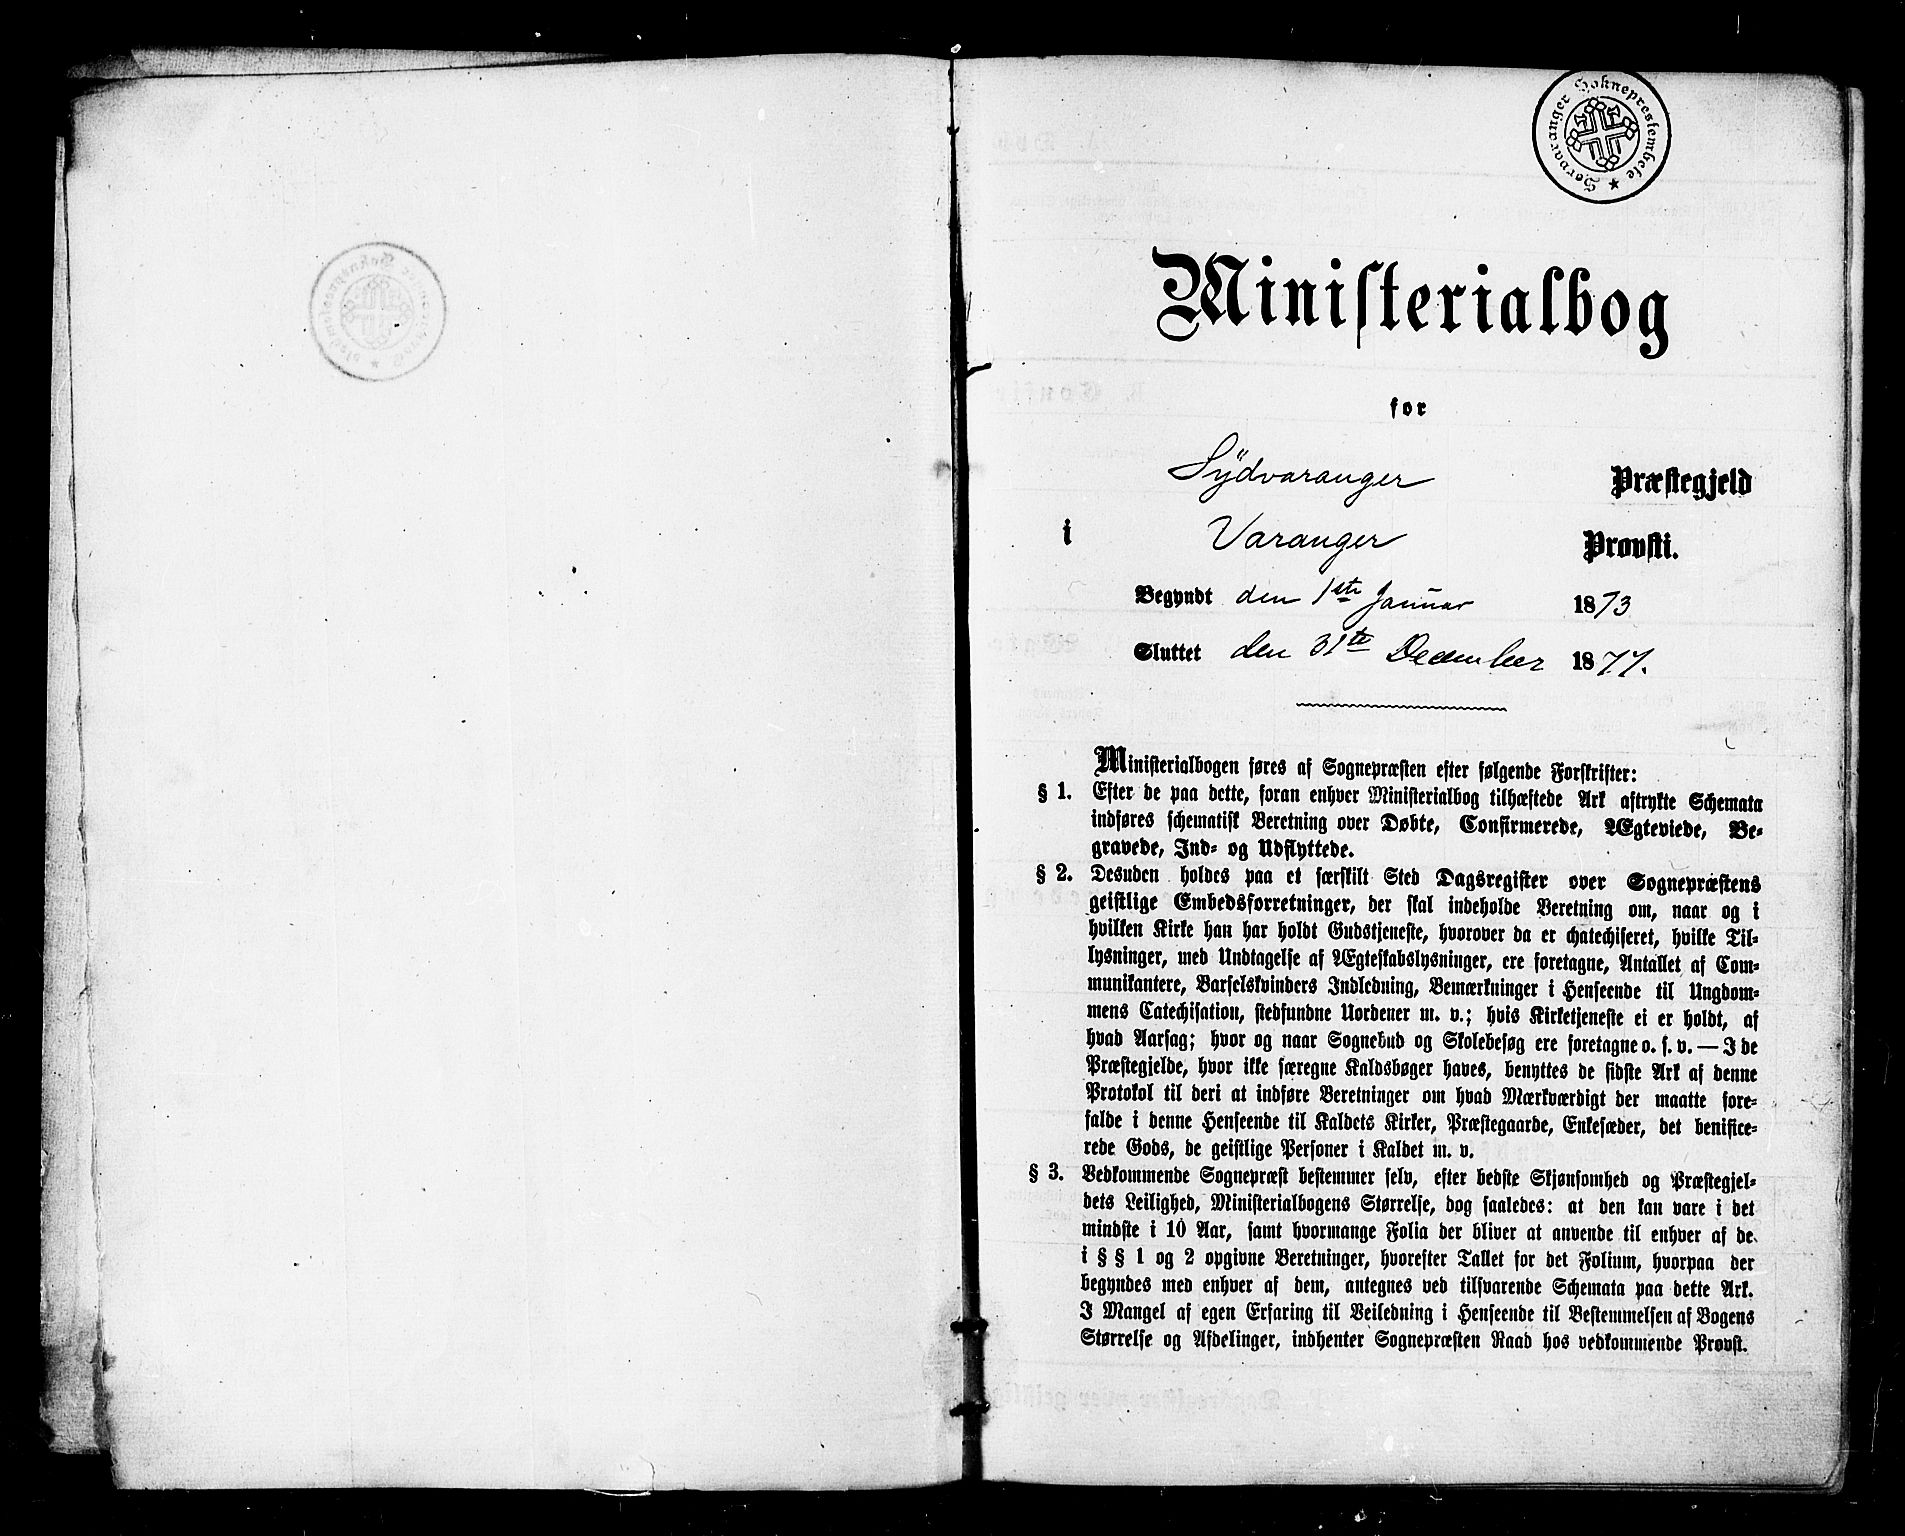 Sørvaranger Sokneprestembete
Ministerialbog
for
Sydvaranger Præstegjeld
i Varanger Provsti.
Begyndt den 1ste Januar 1873
Sluttet den 31te December 1877.
Ministerialbogen føres af Sognepræsten efter følgende Forskrifter:
§ 1. Efter de paa dette, foran enhver Ministerialbog tilhæftede Ark aftrykte Schemata
indføres schematisk Beretning over Døbte, Confirmerede, Ægteviede, Be-
gravede, Ind- og Udflyttede.
§ 2. Desuden holdes paa et særskilt Sted Dagsregister over Sognepræstens
geistlige Embedsforretninger, der skal indeholde Beretning om, naar og i
hvilken Kirke han har holdt Gudstjeneste, hvorover da er chatechiseret, hvilke Til-
lysninger, med Undtagelse af Ægteskabslysninger, ere foretagne, Antallet af Com-
munikantere, Barselskvinders Indledning, Bemærkninger i Henseende til Ungdom-
mens Catechisation, stedfundne Uordener m. v.; hvis Kirketjeneste ei er holdt, af
hvad Aarsag; hvor og naar Sognebud og Skolebesøg ere foretagne o. s. v. — I de
Præstegjelde, hvor ikke særegne Kaldsbøger haves, benyttes de sidste Ark af denne
Protokol til deri at indføre Beretninger om hvad Mærkværdigt der maatte fore-
falde i denne Henseende til Kaldets Kirker, Præstegaarde, Enkesæder, det benifice-
rede Gods, de geistlige Personer i Kaldet m. v.
§ 3. Vedkommende Sognepræst bestemmer selv, efter bedste Skjønsomhed og Præstegjel-
dets Leilighed, Ministerialbogens Størrelse, dog saaledes: at den kan vare i det
mindste i 10 Aar, samt hvormange Folia der bliver at anvende til enhver af de
i § § 1 og 2 opgivne Beretninger, hvorefter Tallet for det Folium, hvorpaa der
begyndes med enhver af dem, antegnes ved tilsvarende Schemata paa dette Ark.
I Mangel af egen Erfaring til Veiledning i Henseende til Bestemmelsen af Bogens
Størrelse og Afdelinger, indhenter Sognepræsten Raad hos vedkommende Provst.